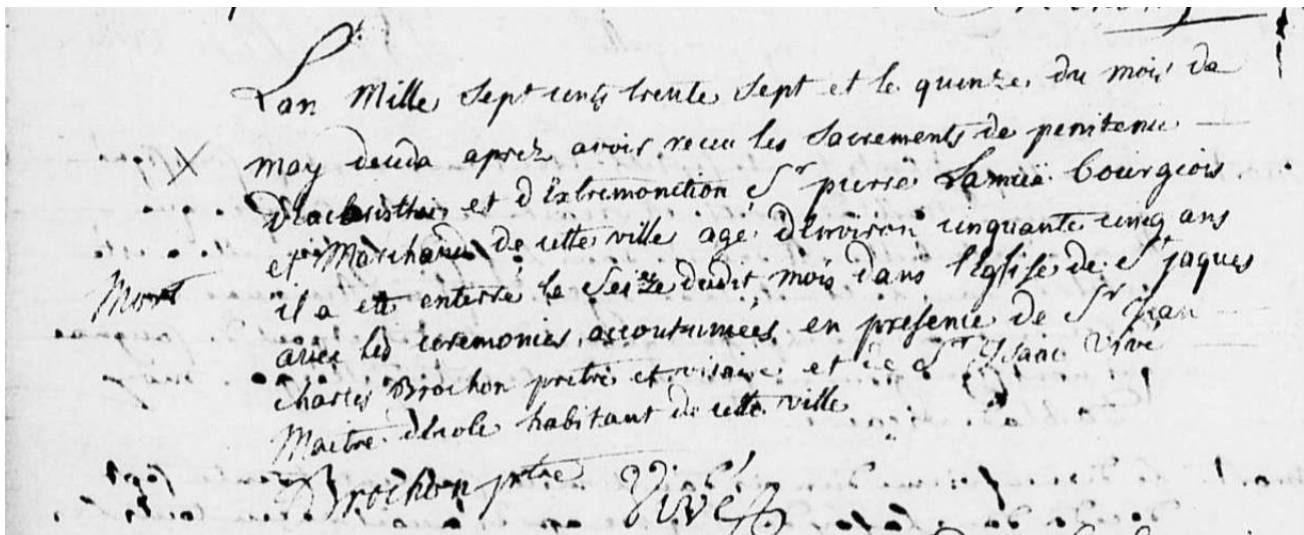 Lan Mille sept cents trente sept et le quinze du mois de
may deceda aprez avoir receu les sacrements de penitence
et d'extremonction Sr pierre Lamie bourgeois
et Marchand de cette ville agé d'environ cinquante cinq ans
il a eté enterré le seize dudit mois dans l'Eglise de St jaques
Mort
avec les ceremonies accoutumées en presence de Sr jean
charles Brochon pretre et vicaire et de Sr Isaac Vivé
Maitre d'ecole habitant de cette ville
Brochon ptre Vivé